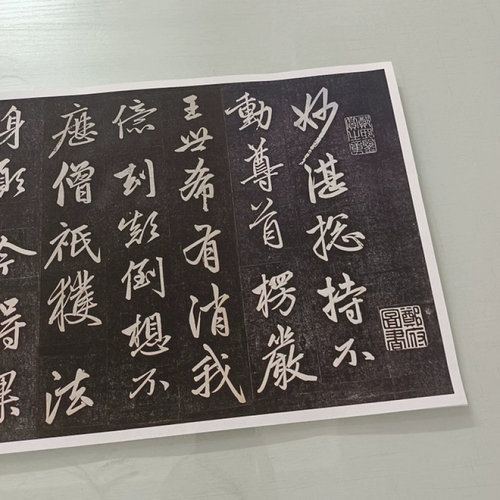 妙湛捴持不
動尊首楞嚴
王世希有消我
億刧顛倒想不
歷僧祇獲法
身願今得果